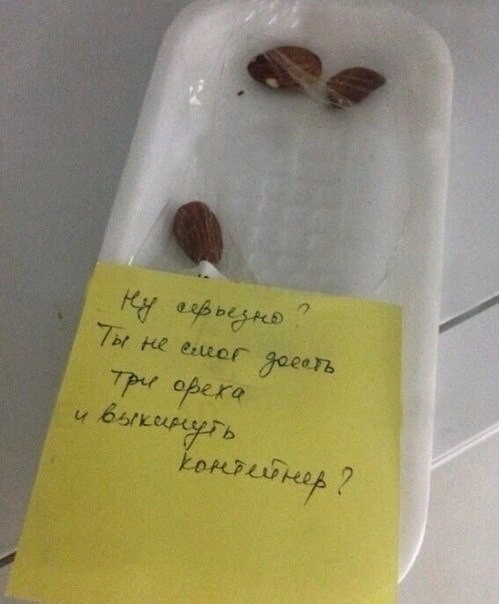 Ну серьезно?
Ты не смог доесть
три ореха
и выкинуть
контейнер?